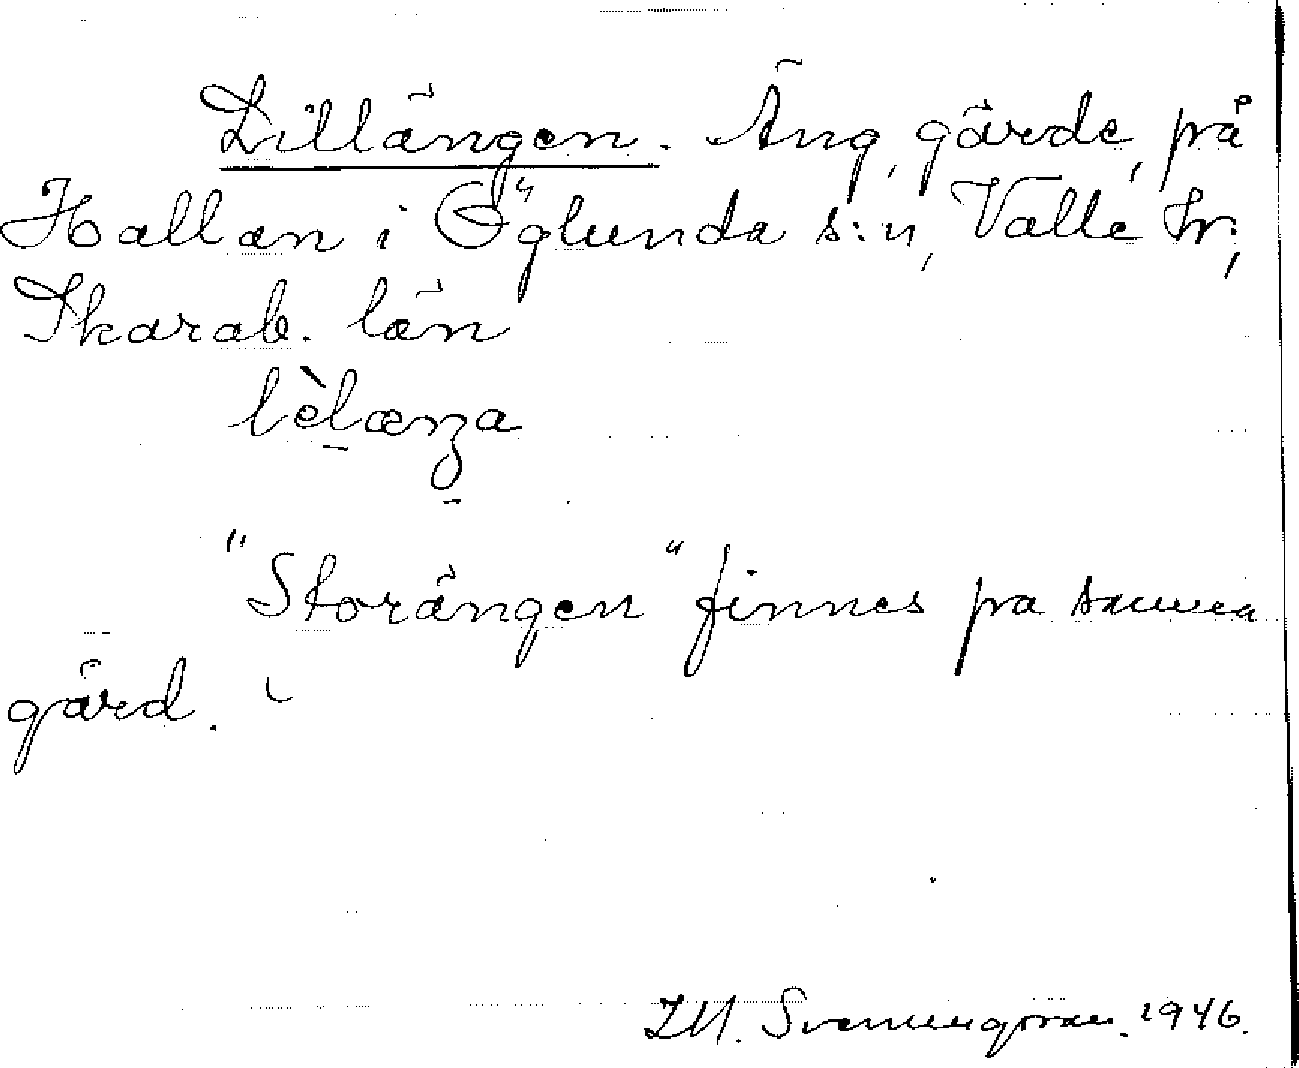 Lillängen. Äng, gärde, på
Hallan i Öglunda s:n, Valle hr;
Skarab. län
lèlæŋa
"Storängen" finnes på samma
gård.
Svenningsson. 1946.